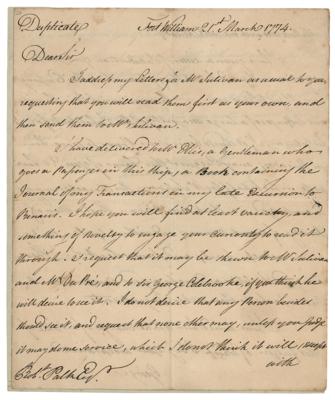 Duplicate Fort William 21st March 1774.
Dear Sir
I address my Letters to Mr Sulivan as usual to you
requesting that you will read them first as your own, and
then send them to Mr Sulivan.
I have delivered to Mr Elie, a Gentleman who
goes a Passenger in this Ship, a Book containing the
Journal of my Transactions in my late Excursion to
Benaris. I hope you will find at least variety, and
something of Novelty to engage your curiosity to read it
through. I request that it may be shewn to Mr Sulivan
and Mr Du Pré, and to Sir George Colebrooke, if you think he
will desire to see it. I do not desire that any Person besides
should see it, and request that none other may, unless you judge
it may do me service, which I do not think it will
with
Robt. Palk Esqr.